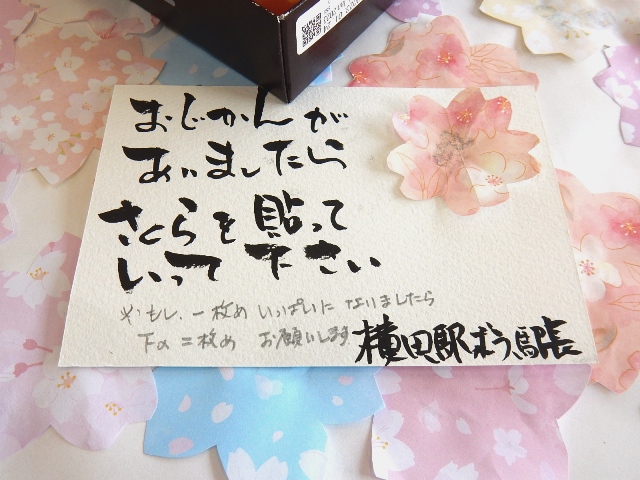 おじかんが
あいましたら
さくらを貼って
いって下さい
※もし、一枚めいっぱいになりましたら
下の二枚め お願いします
横田駅ぼう駅長